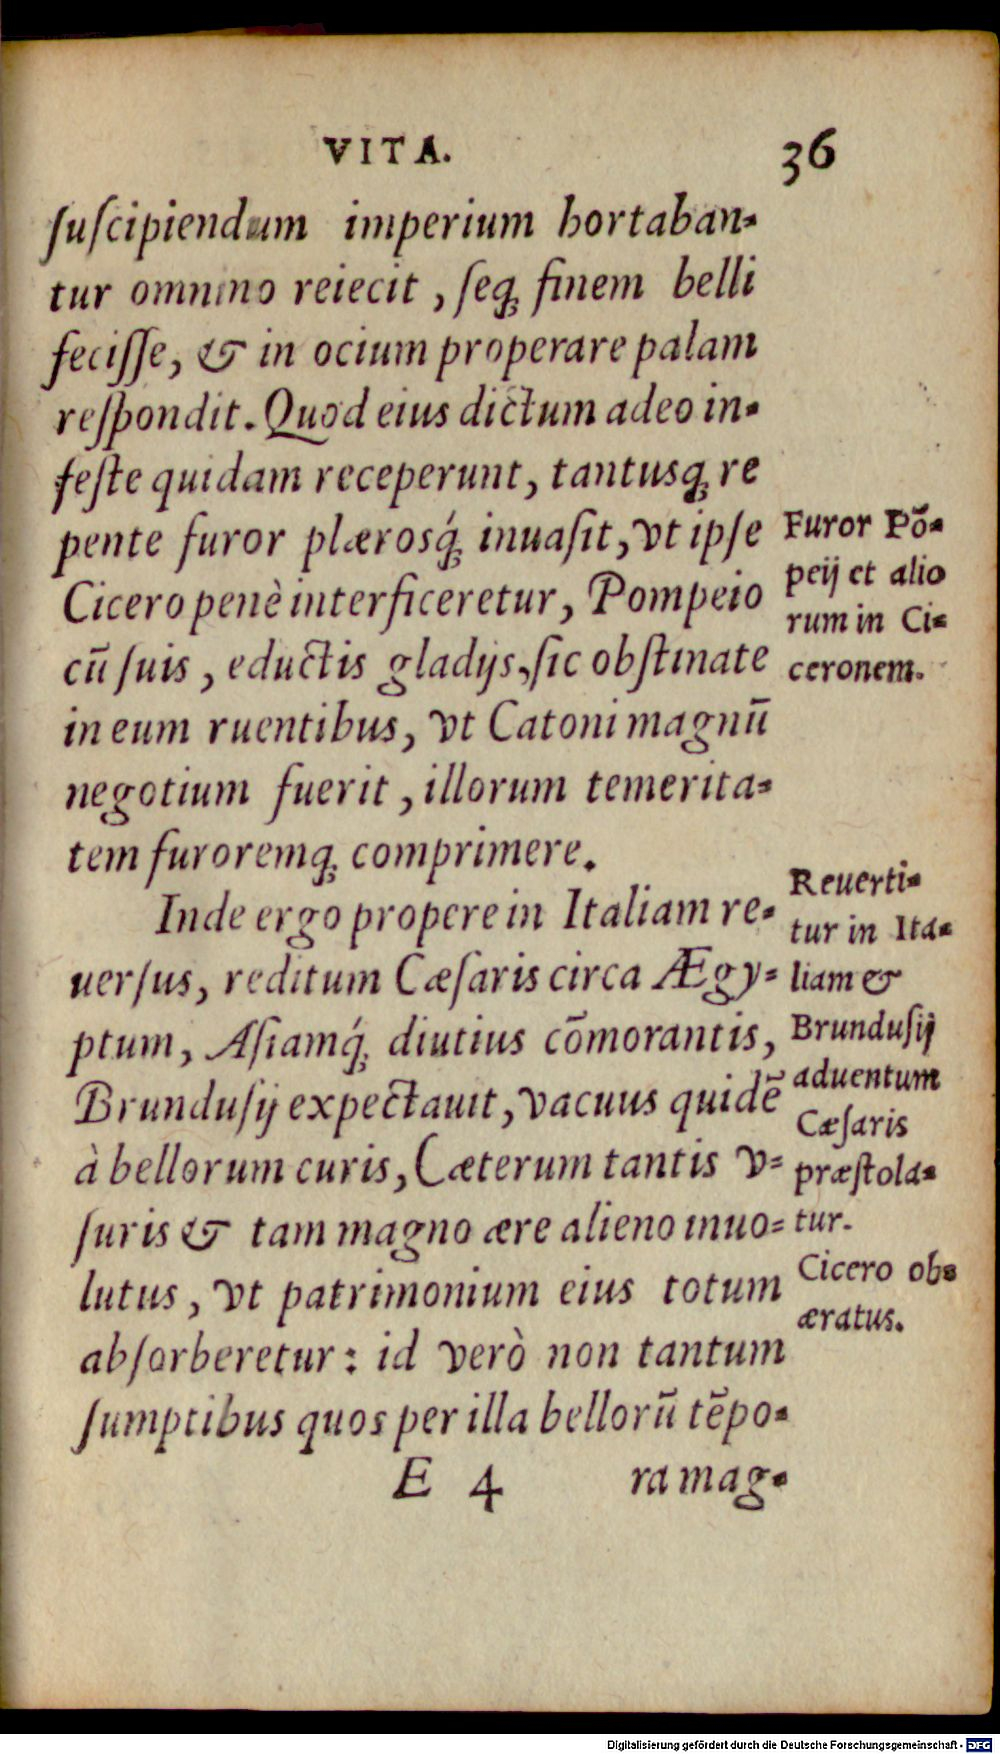 VITA. 36
ſuſcipiendum imperium hortaban-
tur omnino reiecit, ſeq; finem belli
feciſſe, & in ocium properare palam
reſpondit. Quod eius dictum adeo in-
feſte quidam receperunt, tantusq; re
pente furor plærosq́; inuaſit, vt ipſe
Cicero penè interficeretur, Pompeio
cū ſuis, eductis gladijs, ſic obſtinate
in eum ruentibus, vt Catoni magnū
negotium fuerit, illorum temerita-
tem furoremq; comprimere.
Furor Pō-
peij et alio
rum in Ci-
ceronem.
Inde ergo propere in Italiam re-
uerſus, reditum Cæſaris circa Ægy-
ptum, Aſiamq́; diutius cōmorantis,
Brunduſij expectauit, vacuus quidē
à bellorum curis, Cæterum tantis v-
ſuris & tam magno ære alieno inuo-
lutus, vt patrimonium eius totum
abſorberetur: id verò non tantum
ſumptibus quos per illa bellorū tēpo-
Reuerti-
tur in Ita-
liam &
Brunduſij
aduentum
Cæſaris
præſtola-
tur.
Cicero ob-
æratus.
E 4 ra mag-
Digitalisierung gefördert durch die Deutsche Forschungsgemeinschaft - DFG